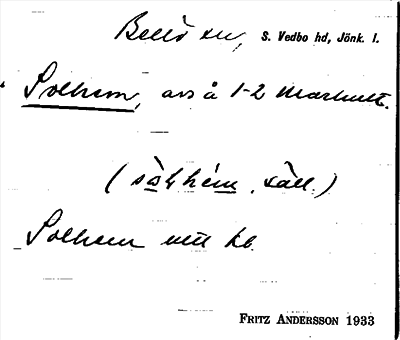 Bellö sn, S. Vedbo hd, Jönk. l.
Solhem, avs å 1-2 Marhult.
(sɷ̀lhém, säll.)
Solhem utt kb.
FRITZ ANDERSSON 1933